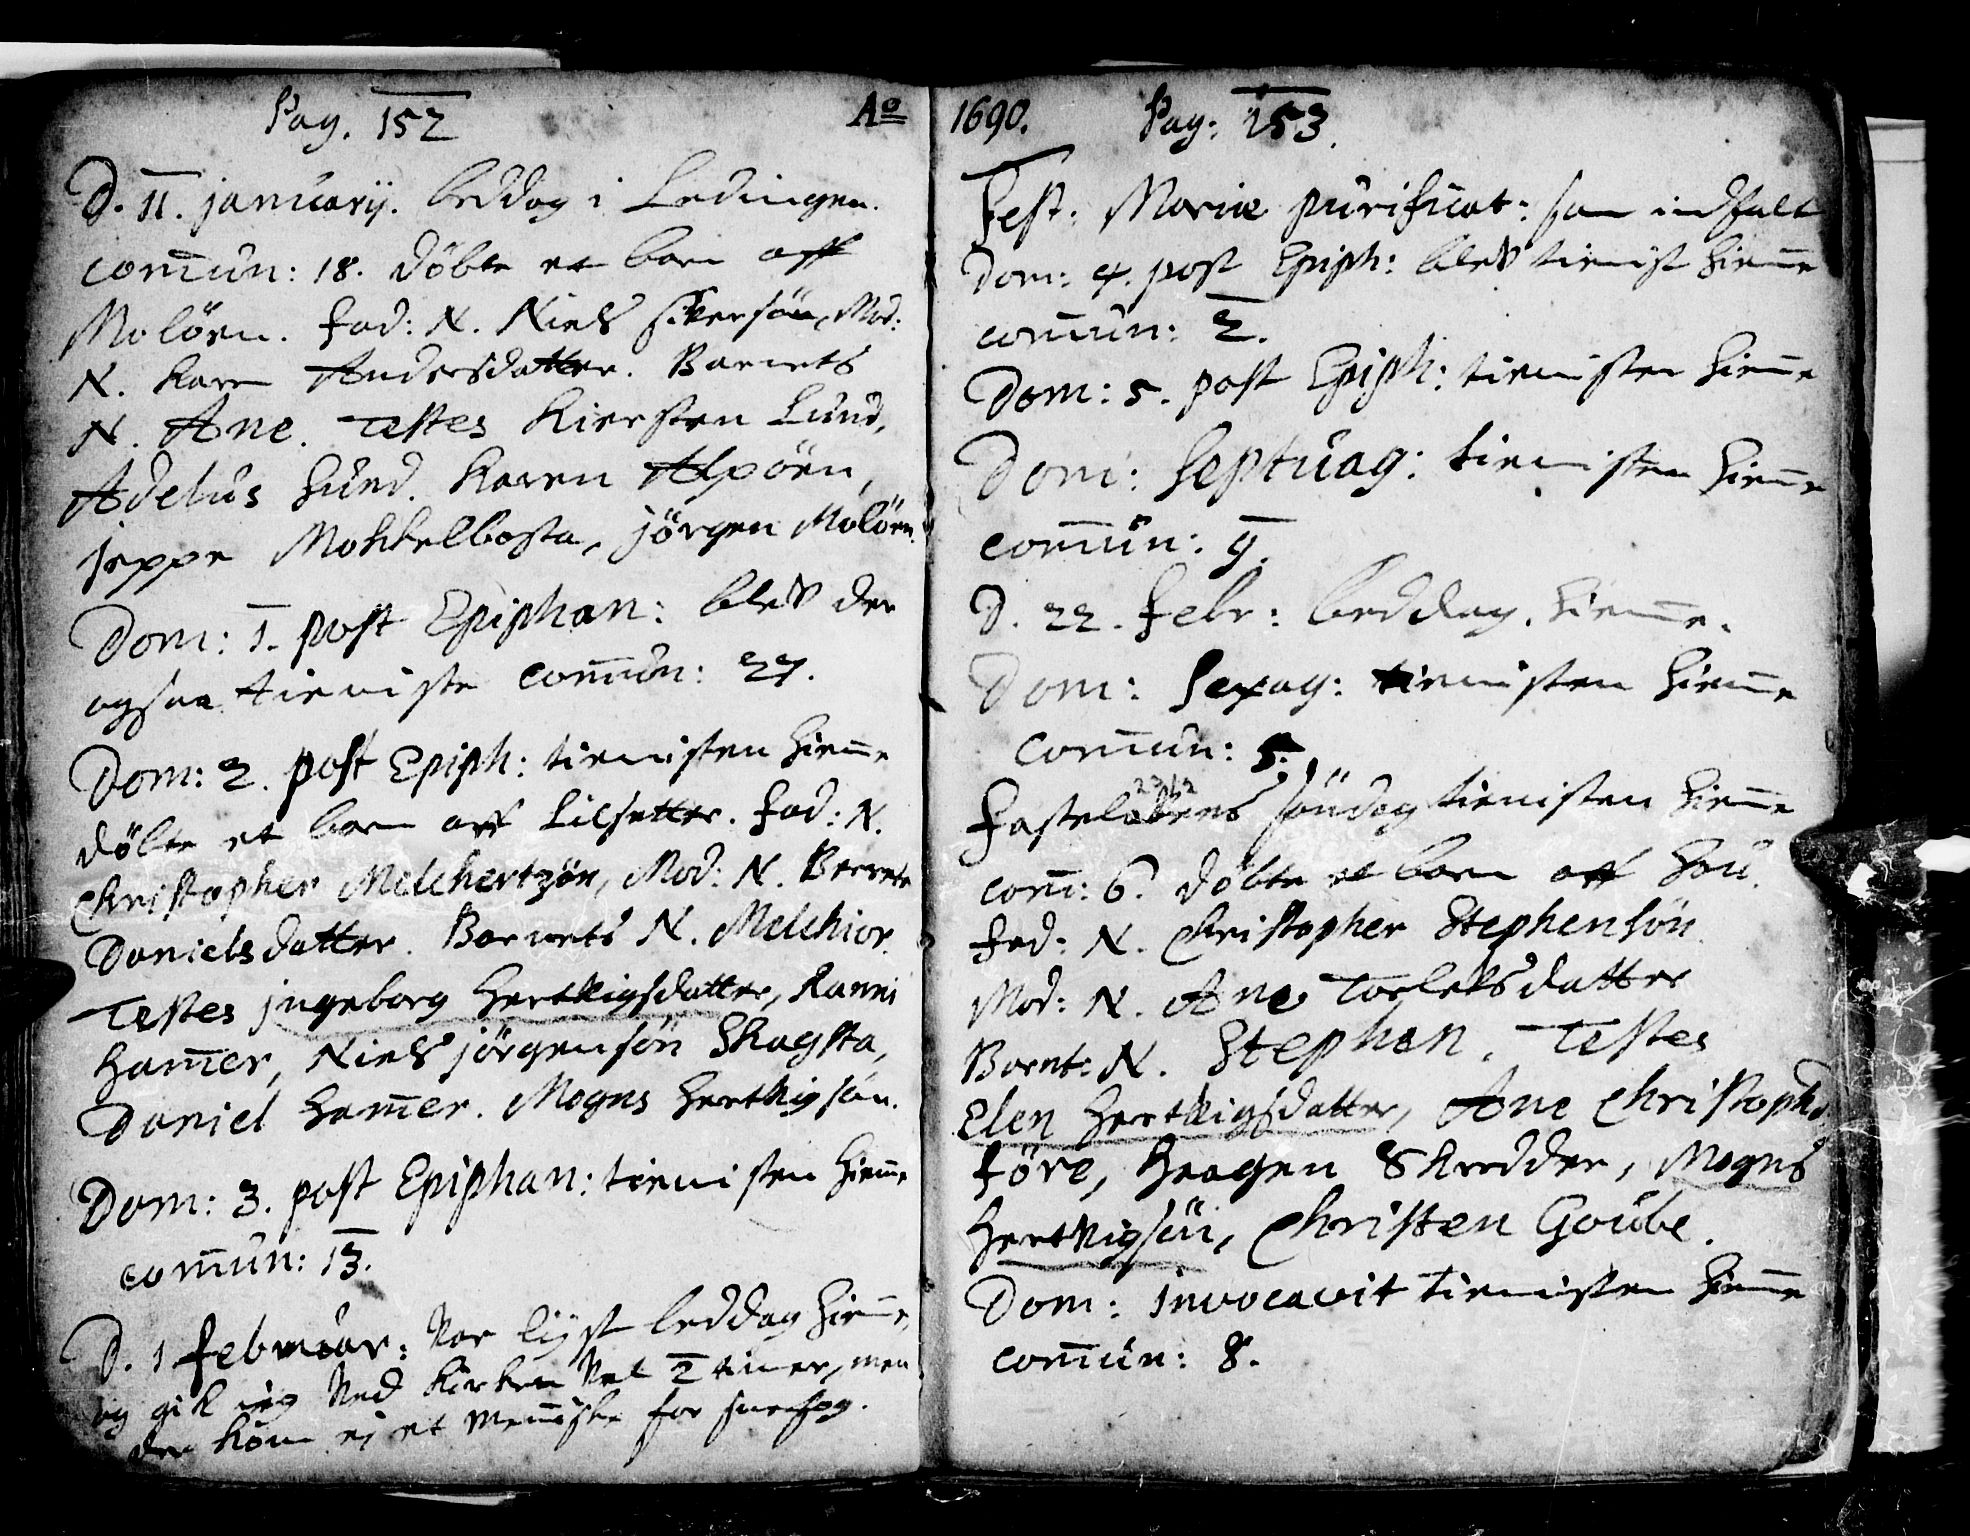 Pag. 152 Ao
D. 11. januarij. beddag i Ledingen.
com̄un: 18. döbte et barn aff
Molöen. fad: N. Niels siversön, Mod:
N. Karen Andersdatter. Barnets
N. Ane. Testes Kiersten Lund,
Adelus hund. Karen Alpöen,
jeppe Mokkelbosta, jörgen Molöen.
Dom: 1. post Epiphan: blev der
ogsaa tieniste com̄un: 27.
Dom: 2. post Epiph: tienisten hiem̄e
döbte et barn aff Lilsetter. fad: N.
Christopher Melchertzön, Mod: N. Berrete
Danielsdatter. Barnets N. Melchior.
Testes jngeborg hertkigsdatter, Ranni
ham̄er, Niels jörgensön Skagsta,
Daniel ham̄er. Mogns hertkigsön.
Dom: 3. post Epiphan: tienisten hiem̄e
com̄un: 13.
D. 1 februar: var lyst beddag hiem̄e,
og gik jeg ved kirken vel 2 timer, men
der kom ej et men̄iske for snefog.
1690. Pag: 153.
Fest: Mariæ purificat: som indfalt
Dom: 4. post Epiph: blev tienist hiem̄e
com̄un: 2.
Dom: 5. post Epiph: tienisten hiem̄e
Dom: Septuag: tienisten hiem̄e
com̄un: 9.
D. 22. febr: beddag. hiem̄e.
Dom: Sexag: tienisten hiem̄e
com̄un: 5.
fastelavens söndag tienisten hiem̄e
com̄: 6. döbte et barn aff Hou.
fad: N. Christopher Stephensön
Mod: N. Ane Torlevsdatter
Barnt: N. Stephen. Testes
Elen hertkigsdatter, Ane Christoph:
före, haagen Skredder, Mogns
hertkigsön, Christen Goube.
Dom: invocavit tienisten hiem̄e
com̄un: 8.